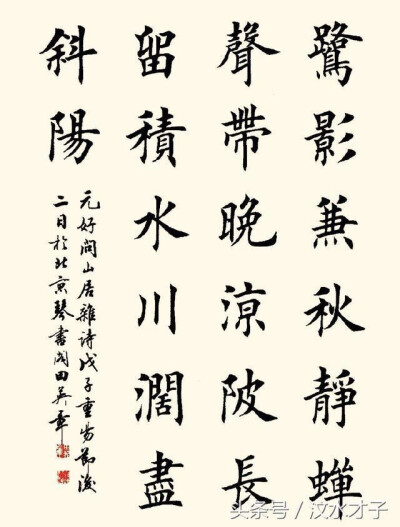 鷺影兼秋靜蟬
聲帶晚涼陂長
留積水川濶盡
斜陽
元好問山居雜诗戊子重陽節後
二日於北京琴書閣田英章
头条号 / 汶水才子